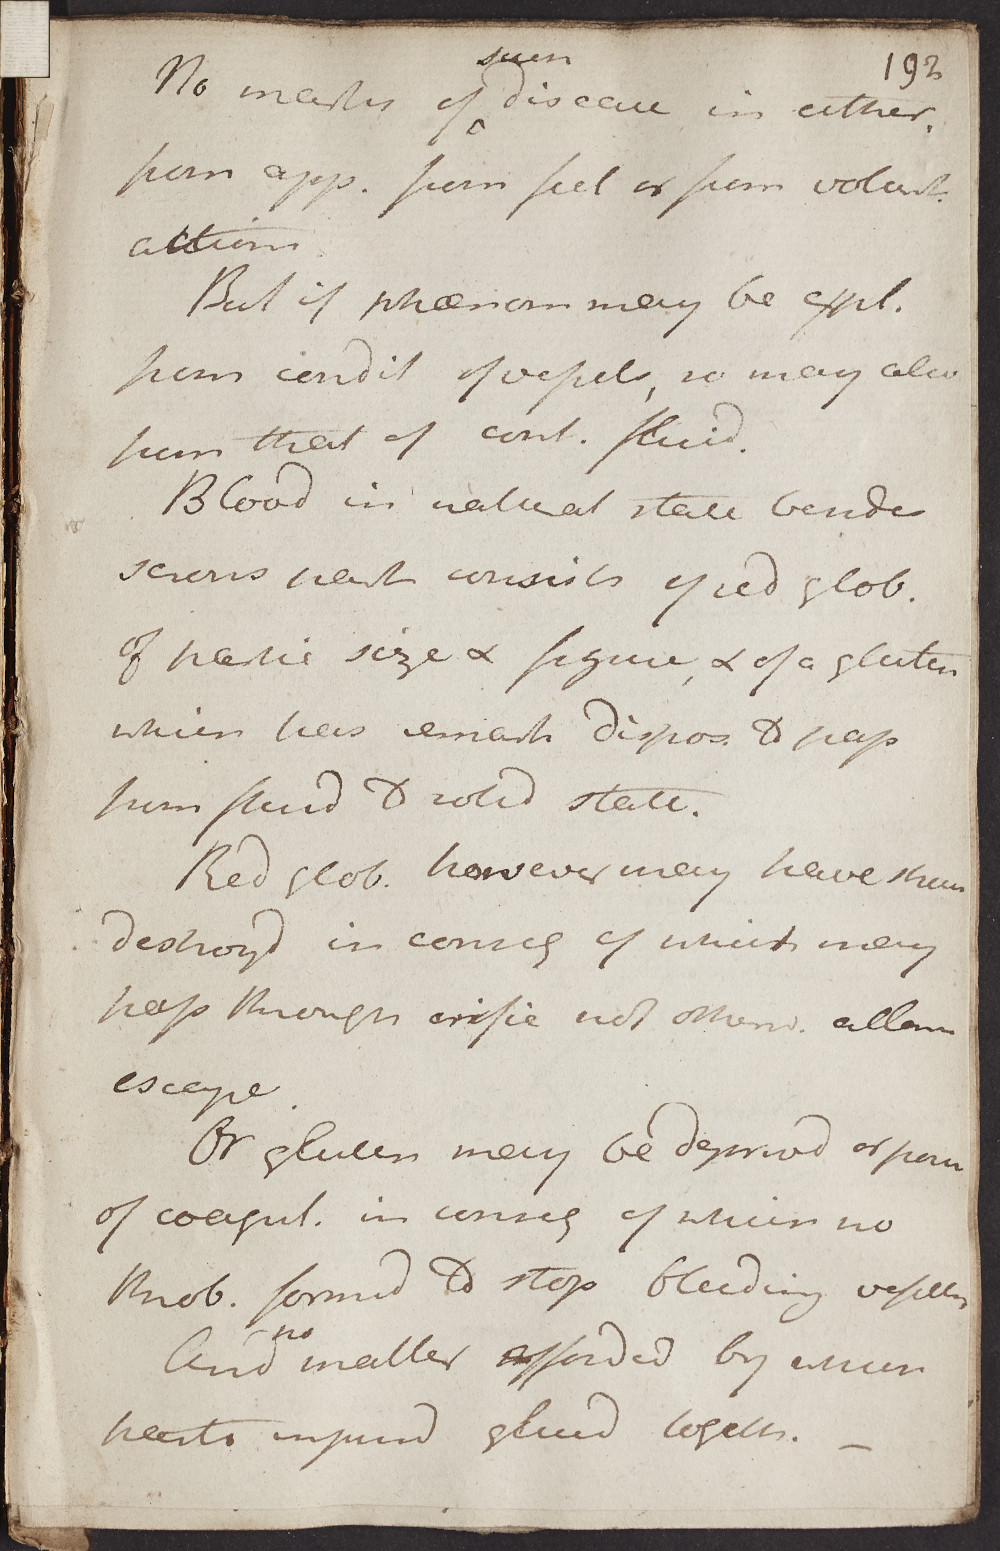 192
No marks of such disease in either,
from app. from feel or from volunt.
actions
But if phænom may be expl.
from condit of vessels, so may also
from that of cont. fluid.
Blood in natural state besides
serous part consists of red glob.
of partic size & figure, & of a gluten
which has remark dispos to pass
from fluid to solid state.
Red glob. however may have
destroyd in conseq of which may
pass through orific not otherw. allow
escape.
Or gluten may be deprivd of pow
of coagul. in conseq of which no
throb. formd to stop bleeding vessells
And no matter afforded by which
parts injurd glued togeth. —